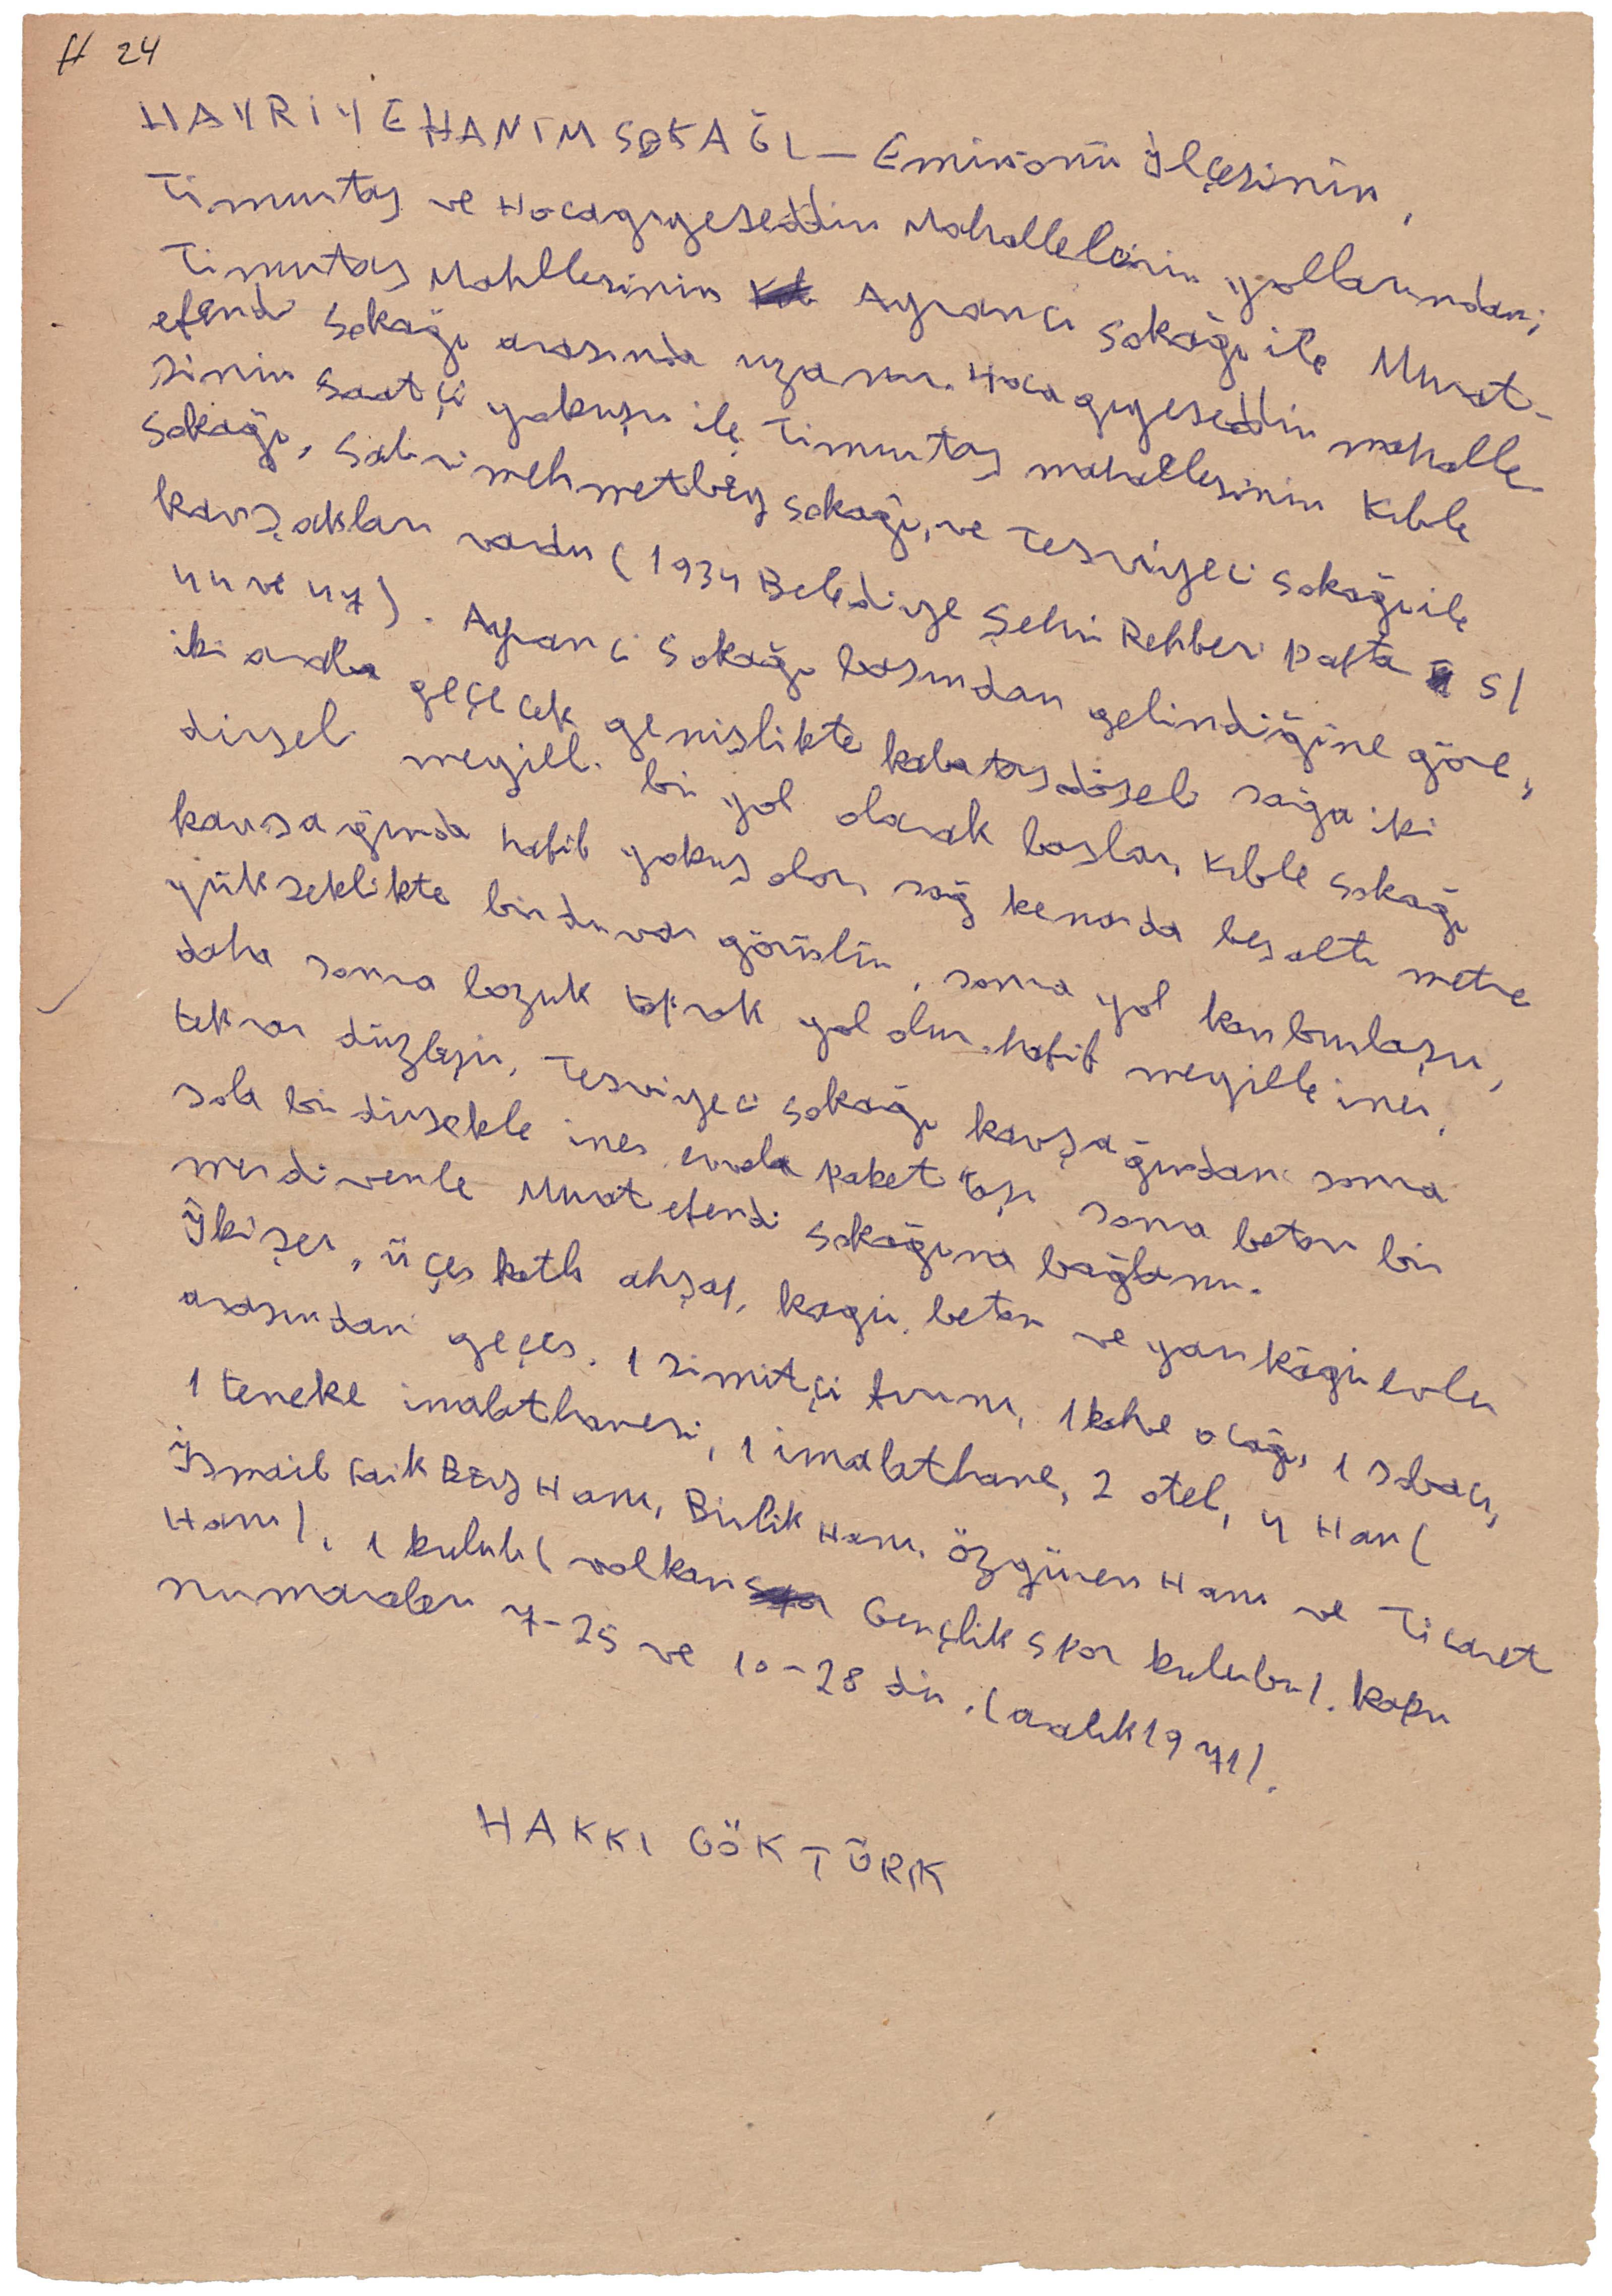 H 24
HAYRİYE HANIM SOKAĞI — Eminönü İlçesinin,
Timurtaş ve Hocagıyeseddin Mahallelerin yollarından;
Timurtaş Mahllesinin Ayrancı Sokağı ile Murat-
efendi Sokağı arasında uzanır. Hocagıyeseddin mahalle-
sinin Saatçi yokuşu ile Timurtaş mahallesinin Kıble
Sokağı, Sabrimehmetbey Sokağı, ve Tesviyeci Sokağı ile
kavşakları vardır (1934 Belediye Şehir Rehberi Pafta 5/
44 ve 47). Ayrancı Sokağı başından gelindiğine göre,
iki araba geçecek genişlikte kabataş döşeli sağa iki
dirsekli meyilli bir yol olarak başlar, Kıble Sokağı
kavşağında hafif yokuş olur, sağ kenarda beş altı metre
yükseklikte bir duvar görülür, sonra yol kanburlaşır,
daha sonra bozuk toprak yol olur. hafif meyille iner,
tekrar düzleşir, Tesviyeci Sokağı kavşağından sonra
sola bir dirsekle iner, evvela paket taşı sonra beton bir
merdivenle Murat efendi Sokağına bağlanır.
İkişer, üçer katlı ahşap, kagir, beton ve yarı kâgir evler
arasından geçer. 1 simitçi fırını, 1 kahve ocağı, 1 sobacı,
1 teneke imalathanesi, 1 imalathane, 2 otel, 4 Han (
İsmail Faik Bey Hanı, Birlik Hanı, Özgüven Hanı ve Ticaret
Hanı), 1 kulub (volkan Gençlik Spor kulubu). kapu
numaraları 7-25 ve 10-28 dir. (aralık 1971).
HAKKI GÖKTÜRK